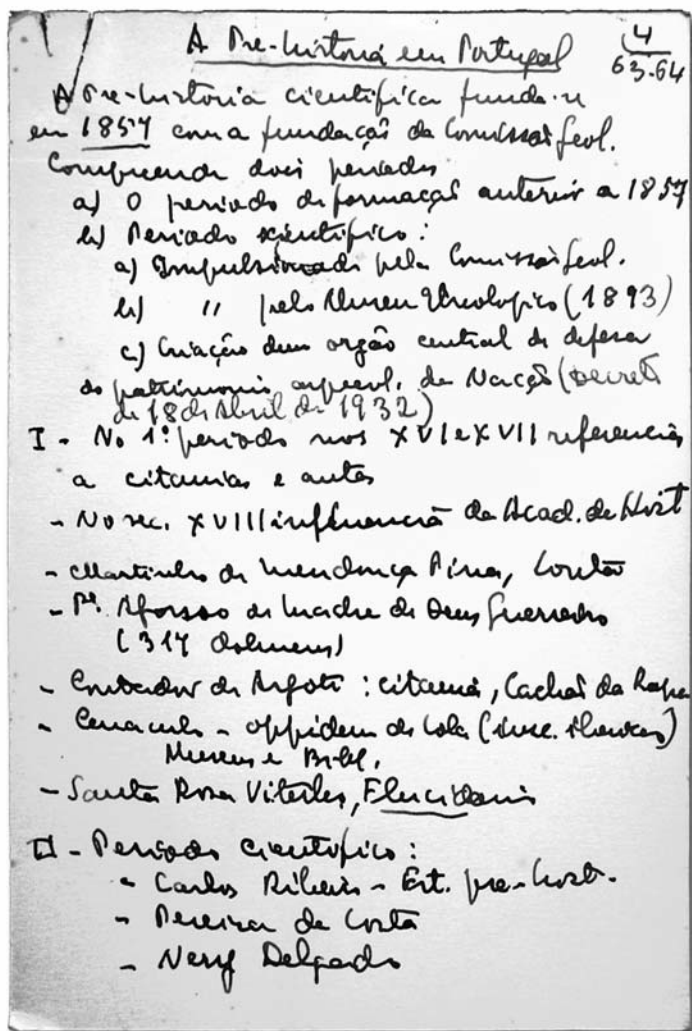 A Pre-historia em Portugal
4
63-64
A Pre-historia cientifica funda-se
em 1857 com a fundação da Comissão Geol.
Compreende dois periodos
a) O periodo de formação anterior a 1857
b) Periodo scientifico:
a) Impulsionado pela Comissão Geol.
b) " pelo Museu Etnologico (1893)
c) Criação dum orgão central de defesa
do patrimonio arqueol. da Nação (Decreto
de 18 de Abril de 1932)
I - No 1º periodo nos XVI e XVII referencias
a citanias e antas
- No sec. XVIII influencia da Acad. de Hist
- Martinho de Mendonça Pina,
- Pe. Afonso da Madre de Deus Guerreiro
(317 dolmens)
- Contador de Argote: citania, Cachão da Rapa
- Cenaculo - oppidum de Cola (insc. ibericas)
Museu e Bibl.
- Santa Rosa Viterbo, Elucidario
II - Periodo cientifico:
- Carlos Ribeiro - Est. pre-hist.
- Pereira da Costa
- Nery Delgado